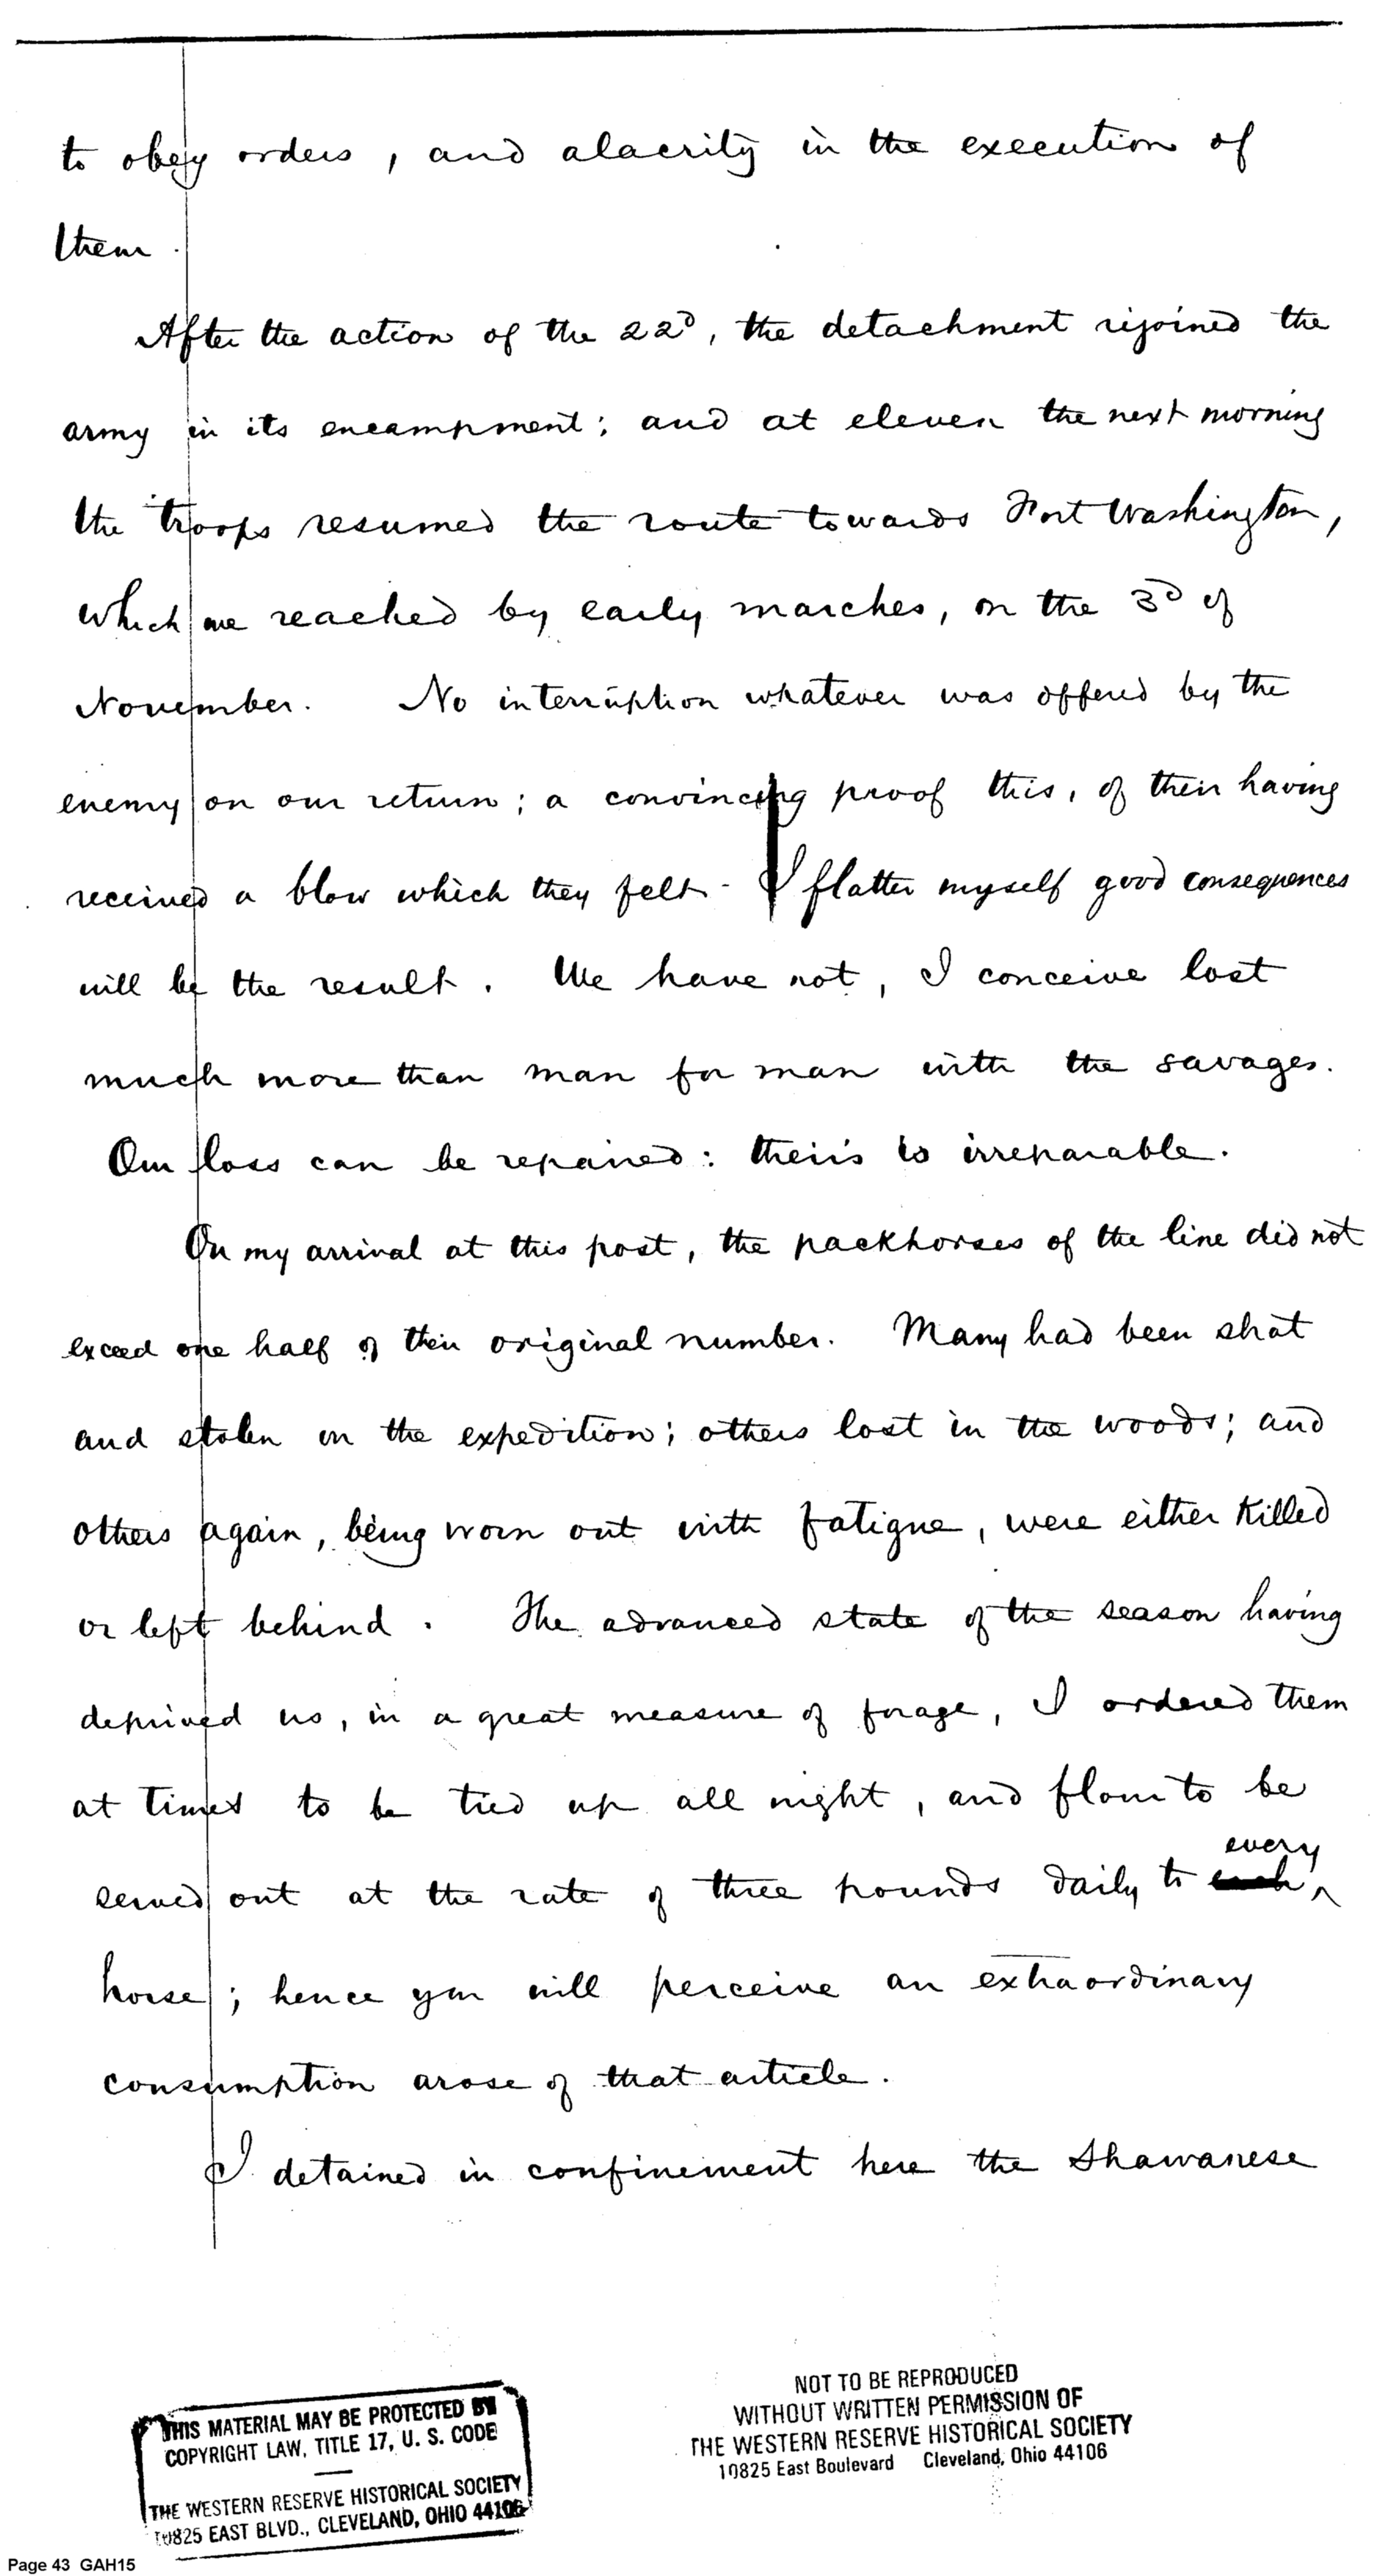 to obey orders, and alacrity in the execution of
them.
After the action of the 22d, the detachment rejoined the
army in its encampment; and at eleven the next morning
the troops resumed the route towards Fort Washington,
which we reached by early marches, on the 3d of
November. No interruption whatever was offered by the
enemy on our return; a convincing proof this, of their having
received a blow which they felt - I flatter myself good consequences
will be the result. We have not, I conceive lost
much more than man for man with the savages.
Our loss can be repaired: theirs is irreparable.
On my arrival at this post, the packhorses of the line did not
exceed one half of their original number. Many had been shot
and stolen on the expedition; others lost in the woods; and
others again, being worn out with fatigue, were either killed
or left behind. The advanced state of the season having
deprived us, in a great measure of forage, I ordered them
at times to be tied up all night, and flour to be
every
served out at the rate of three pounds daily to each
horse; hence you will perceive an extraordinary
consumption arose of that article.
I detained in confinement here the Shawanese
THIS MATERIAL MAY BE PROTECTED BY
COPYRIGHT LAW, TITLE 17, U. S. CODE
THE WESTERN RESERVE HISTORICAL SOCIETY
10825 EAST BLVD., CLEVELAND, OHIO 44106
NOT TO BE REPRODUCED
WITHOUT WRITTEN PERMISSION OF
THE WESTERN RESERVE HISTORICAL SOCIETY
10825 East Boulevard Cleveland, Ohio 44106
Page 43 GAH15